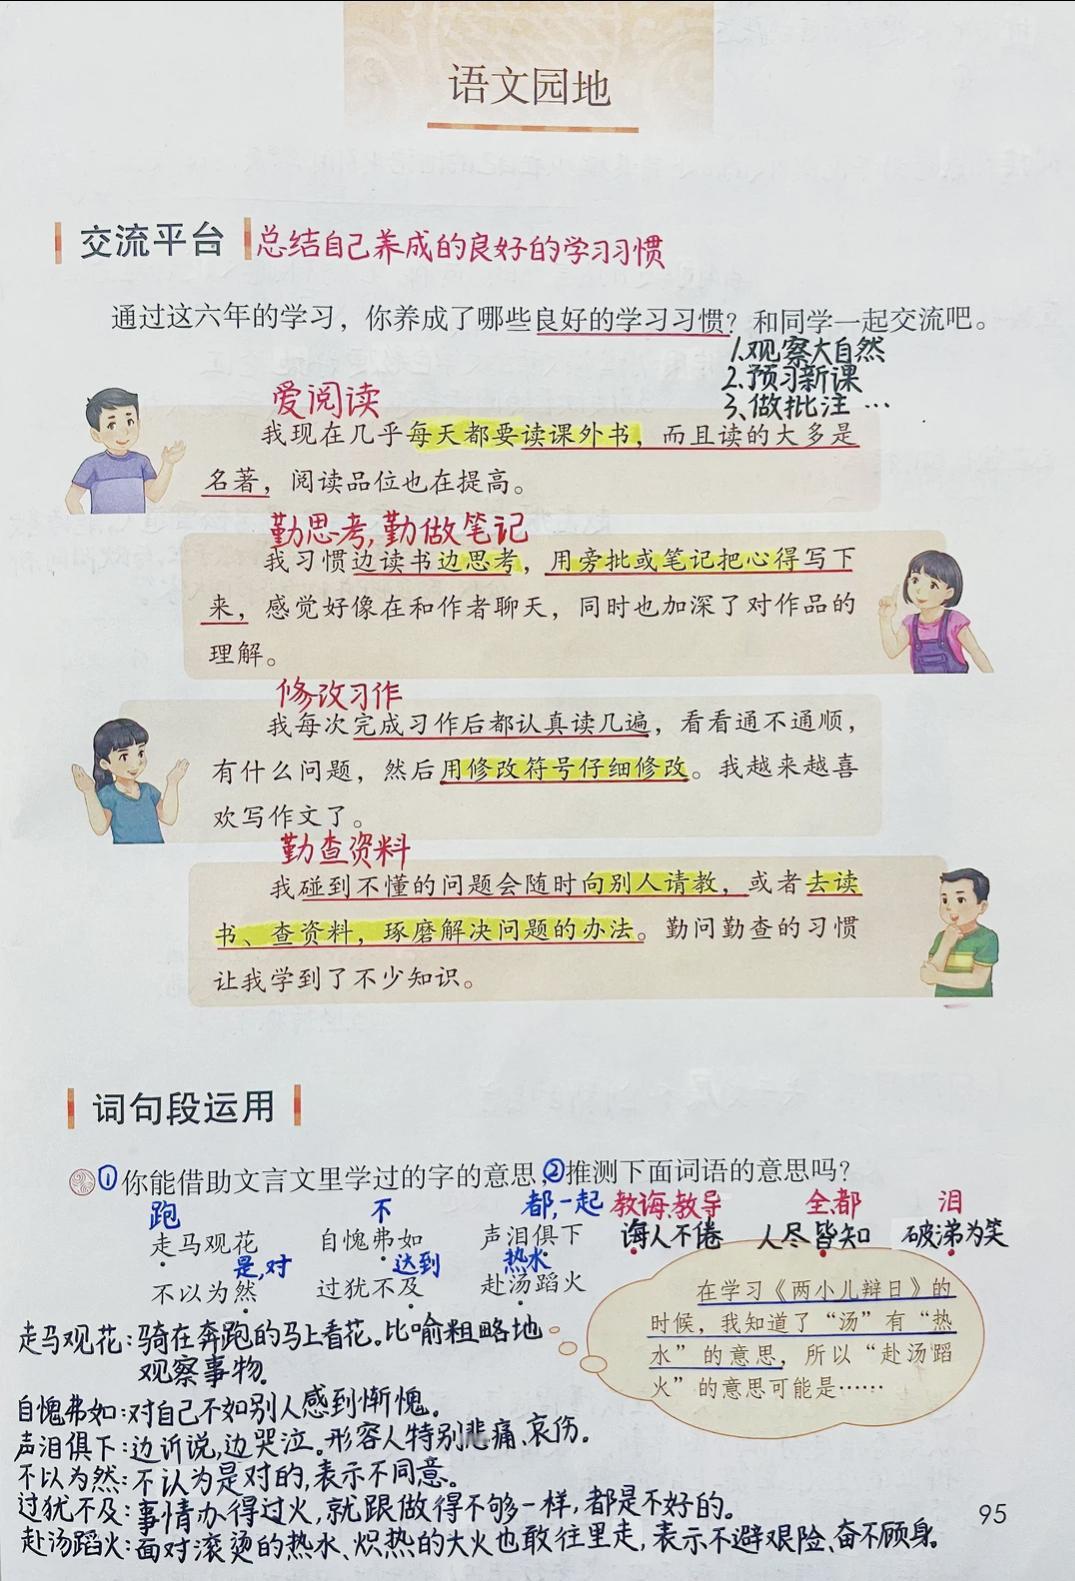 语文园地
交流平台
总结自己养成的良好的学习习惯
通过这六年的学习，你养成了哪些良好的学习习惯？和同学一起交流吧。
1.观察大自然
2.预习新课
3、做批注 …
爱阅读
我现在几乎每天都要读课外书，而且读的大多是
名著，阅读品位也在提高。
勤思考，勤做笔记
我习惯边读书边思考，用旁批或笔记把心得写下
来，感觉好像在和作者聊天，同时也加深了对作品的
理解。
修改习作
我每次完成习作后都认真读几遍，看看通不通顺，
有什么问题，然后用修改符号仔细修改。我越来越喜
欢写作文了。
勤查资料
我碰到不懂的问题会随时向别人请教，或者去读
书、查资料，琢磨解决问题的办法。勤问勤查的习惯
让我学到了不少知识。
词句段运用
①你能借助文言文里学过的字的意思，②推测下面词语的意思吗？
跑 不 都，一起 教诲、教导 全、都 泪
走马观花 自愧弗如 声泪俱下 诲人不倦 人尽皆知 破涕为笑
是，对 达到 热水
不以为然 过犹不及 赴汤蹈火
在学习《两小儿辩日》的
时候，我知道了“汤”有“热
水”的意思，所以“赴汤蹈
火”的意思可能是……
走马观花：骑在奔跑的马上看花。比喻粗略地
观察事物。
自愧弗如：对自己不如别人感到惭愧。
声泪俱下：边诉说，边哭泣。形容人特别悲痛、哀伤。
不以为然：不认为是对的，表示不同意。
过犹不及：事情办得过火，就跟做得不够一样，都是不好的。
赴汤蹈火：面对滚烫的热水、炽热的大火也敢往里走，表示不避艰险、奋不顾身。
95